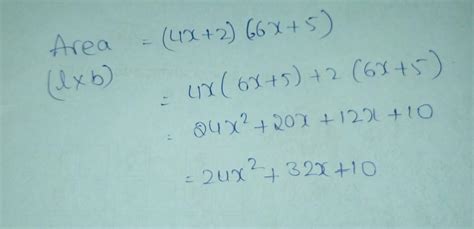 Area = (4x+2) (6x+5)
(l×b)
= 4x(6x+5)+2(6x+5)
= 24x²+20x+12x+10
=24x²+32x+10